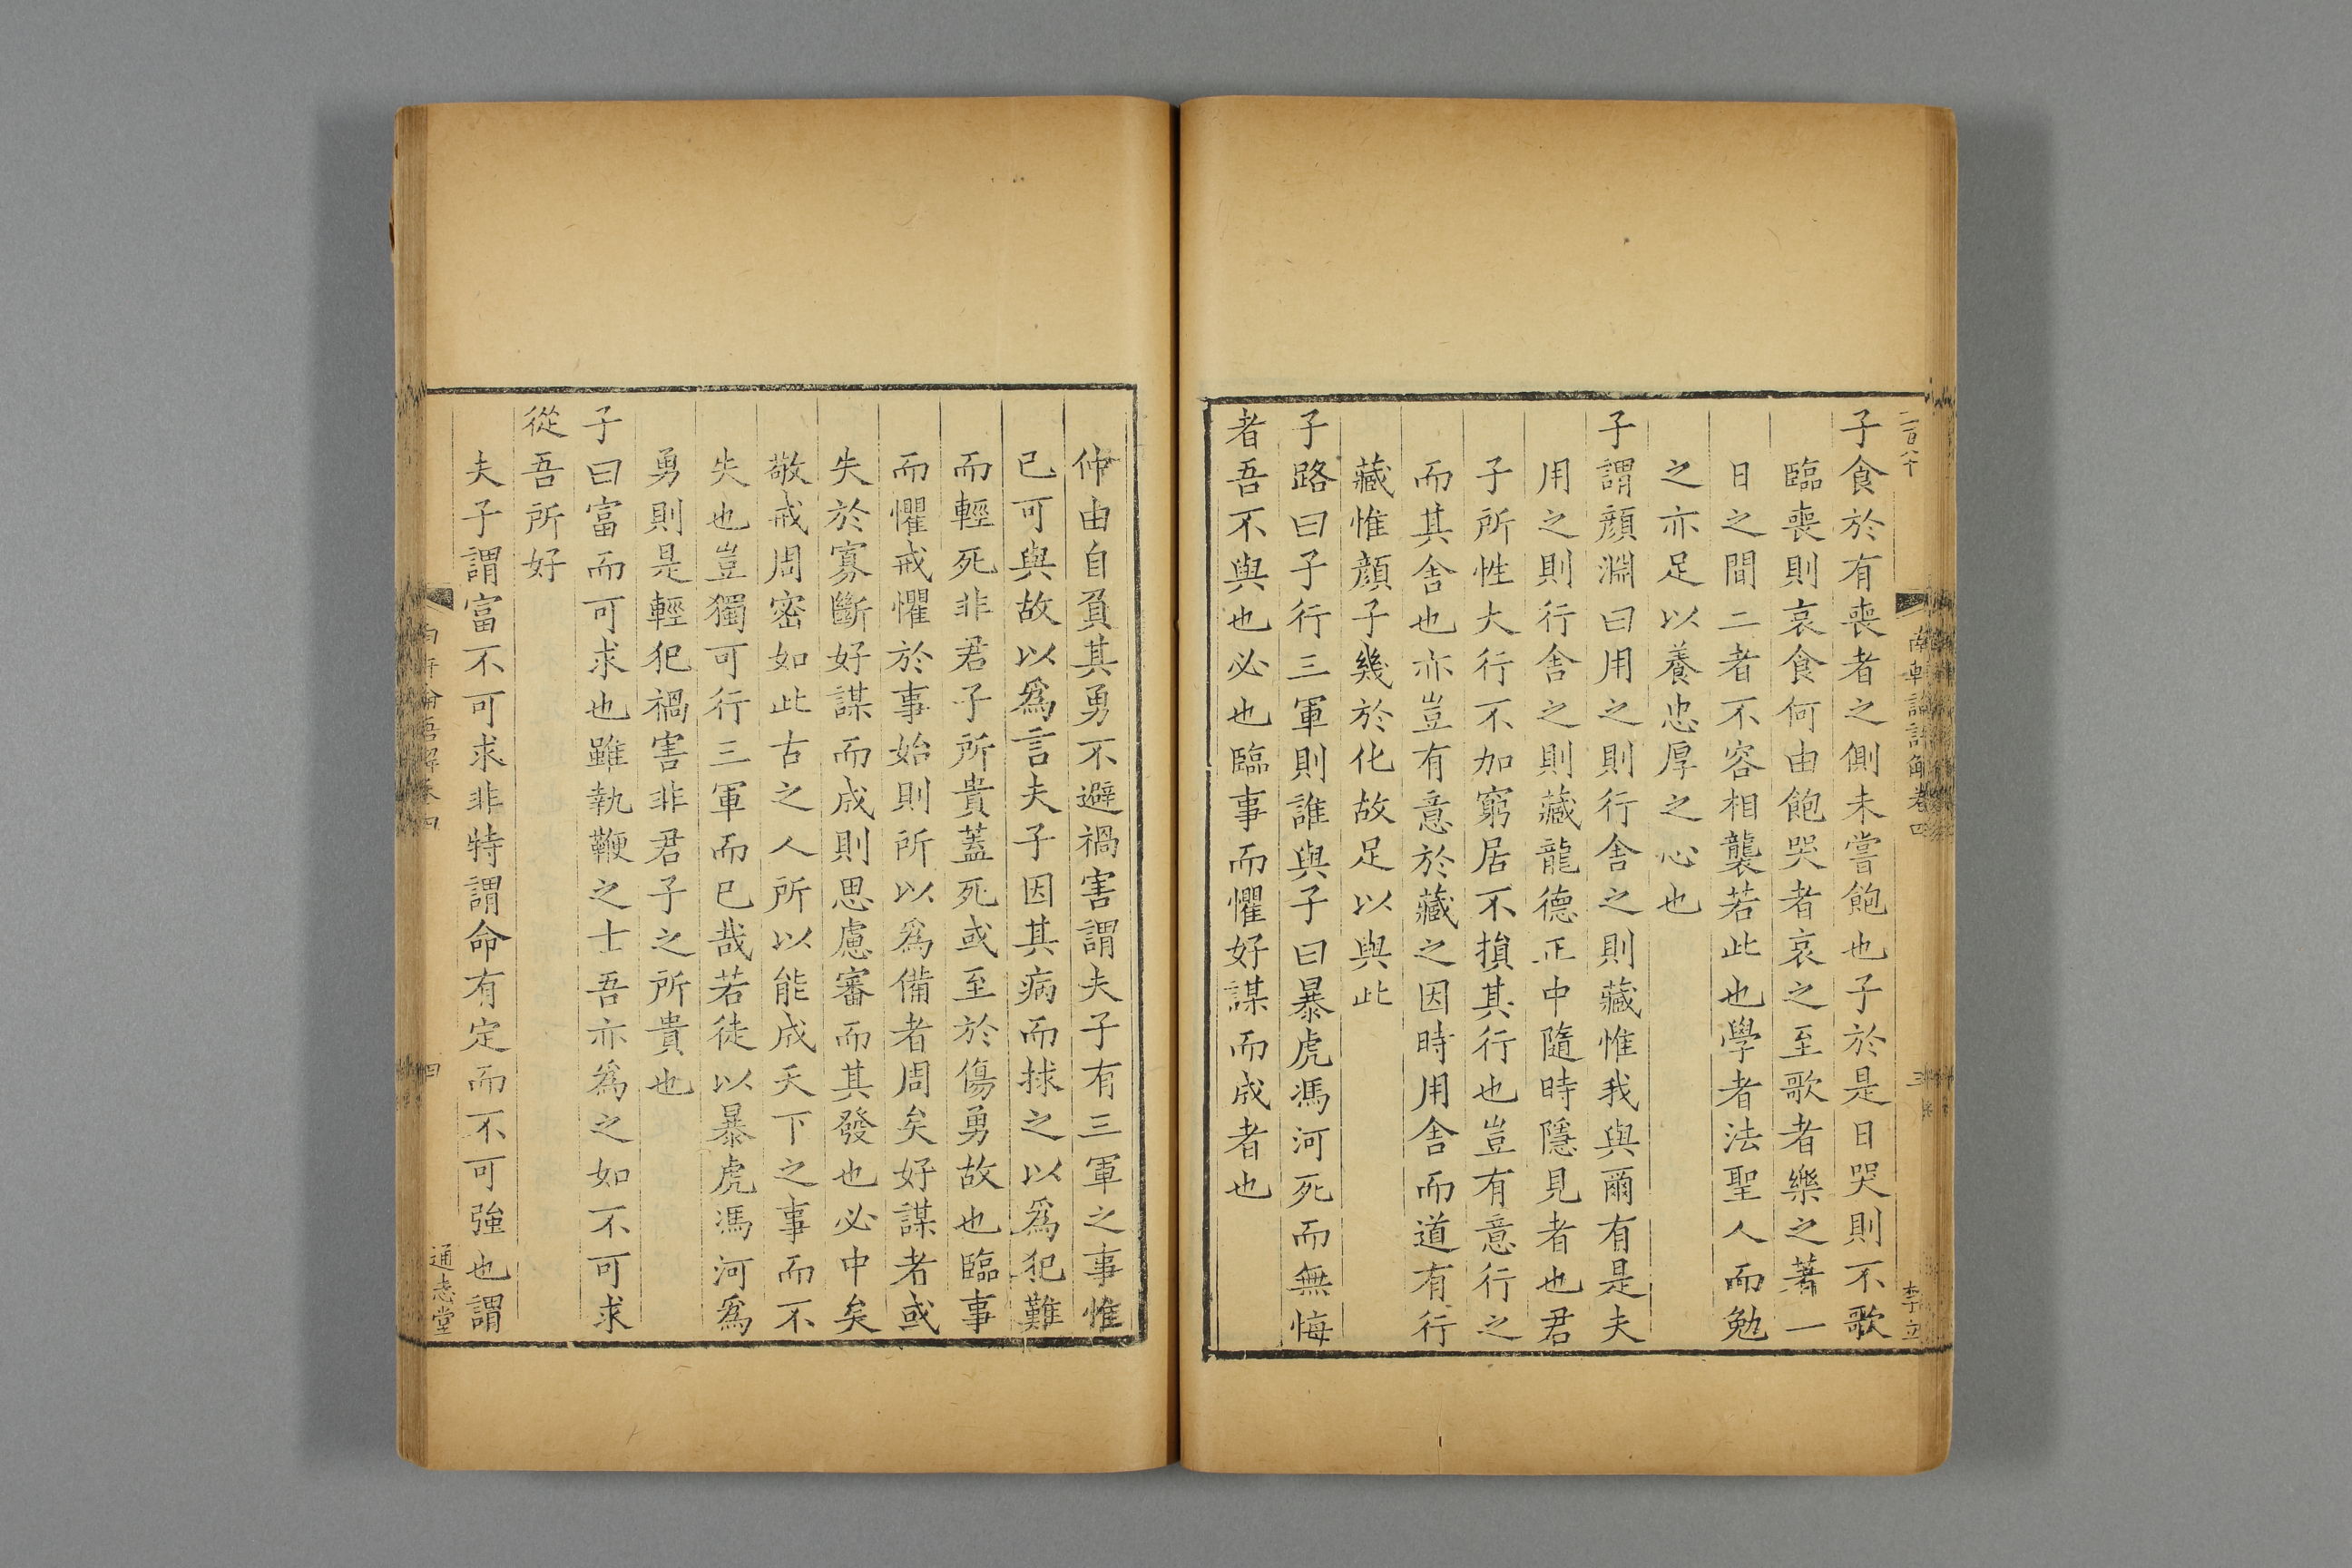 子食於有喪者之側未嘗飽也子於是日哭則不歌
臨喪則哀食何由飽哭者哀之至歌者樂之著一
日之間二者不容相襲若此也學者法聖人而勉
之亦足以養忠厚之心也
子謂顏淵曰用之則行舍之則藏惟我與爾有是夫
用之則行舍之則藏龍德正中隨時隱見者也君
子所性大行不加窮居不損其行也豈有意行之
而其舍也亦豈有意於藏之因時用舍而道有行
藏惟顏子幾於化故足以與此
子路曰子行三軍則誰與子曰暴虎馮河死而無悔
者吾不與也必也臨事而懼好謀而成者也
仲由自負其勇不避禍害謂夫子有三軍之事惟
已可與故以爲言夫子因其病而捄之以爲犯難
而輕死非君子所貴蓋死或至於傷勇故也臨事
而懼戒懼於事始則所以爲備者周矣好謀者或
失於寡斷好謀而成則思慮審而其發也必中矣
敬戒周密如此古之人所以能成天下之事而不
失也豈獨可行三軍而已哉若徒以暴虎馮河爲
勇則是輕犯禍害非君子之所貴也
子曰富而可求也雖執鞭之士吾亦爲之如不可求
從吾所好
夫子謂富不可求非特謂命有定而不可強也謂
通志堂